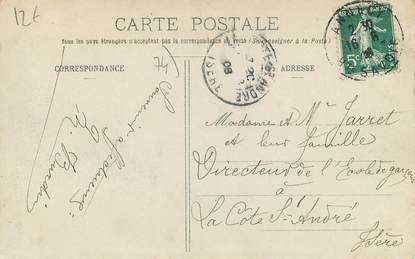 12€
CARTE POSTALE
Tous les pays étrangers n'acceptent pas la correspondance au recto (Se renseigner à la Poste)
CORRESPONDANCE
ADRESSE
74
Souvenir affectueux
ST ANDRÉ
08
(ISÈRE)
5c
Madame et Mr Jarret
et leur famille
Directeur de l'Ecole de garçons
à
La Côte St André
Isère